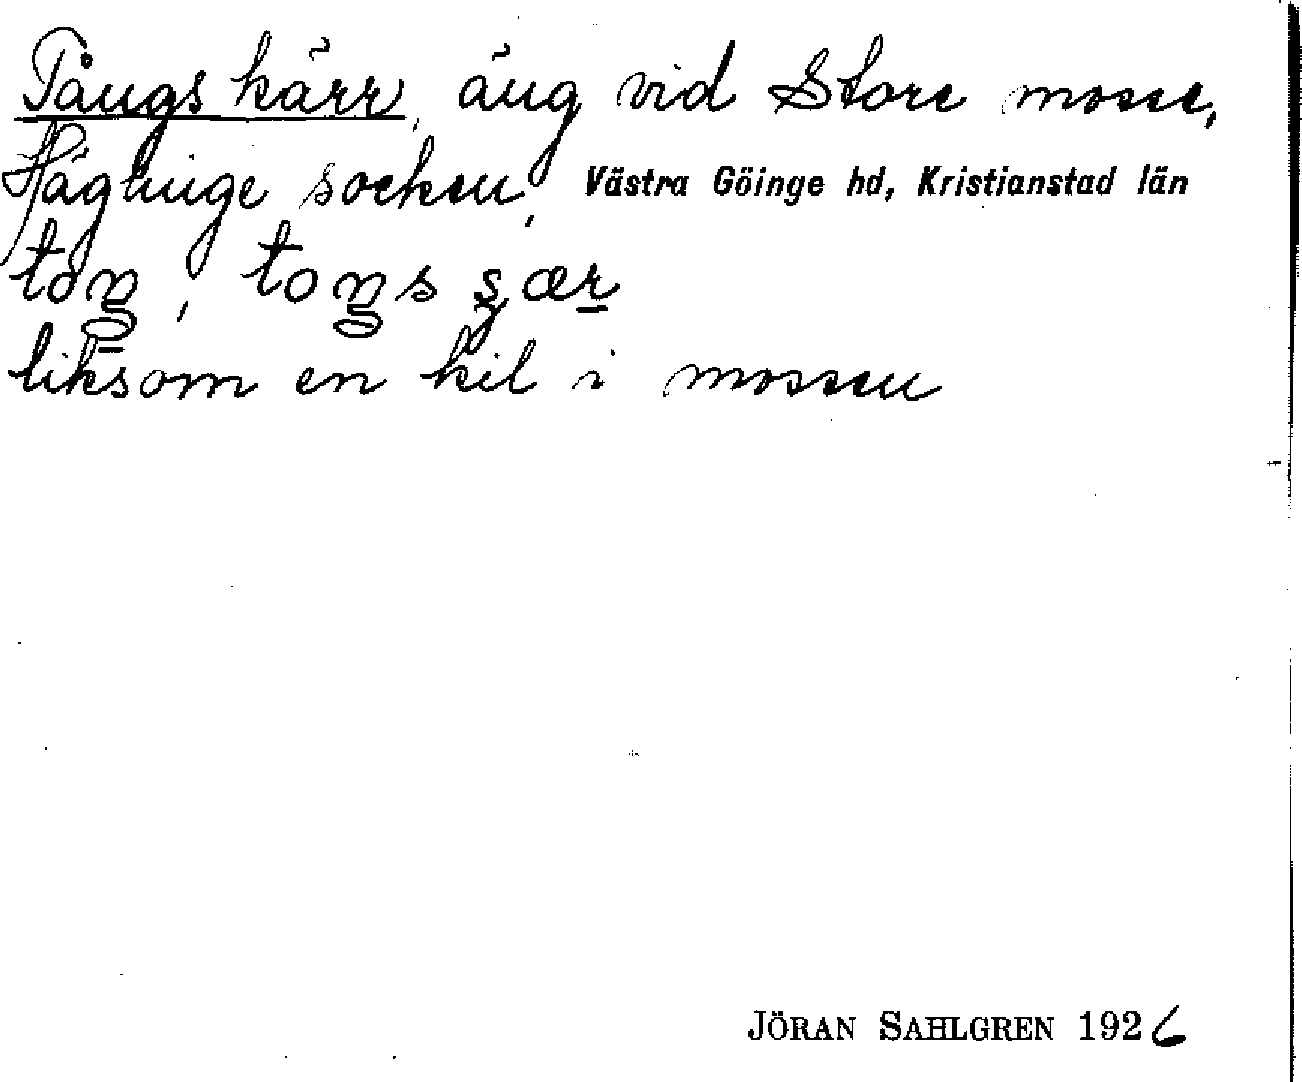 Tångs kärr, äng vid Store mosse,
Häglinge socken, Västra Göinge hd, Kristianstad län
liksom en kil i mossen
JÖRAN SAHLGREN 1926